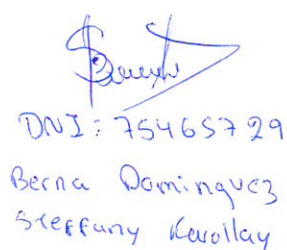 DNI: 75465729
Berna Dominguez
Steffany Kerollay